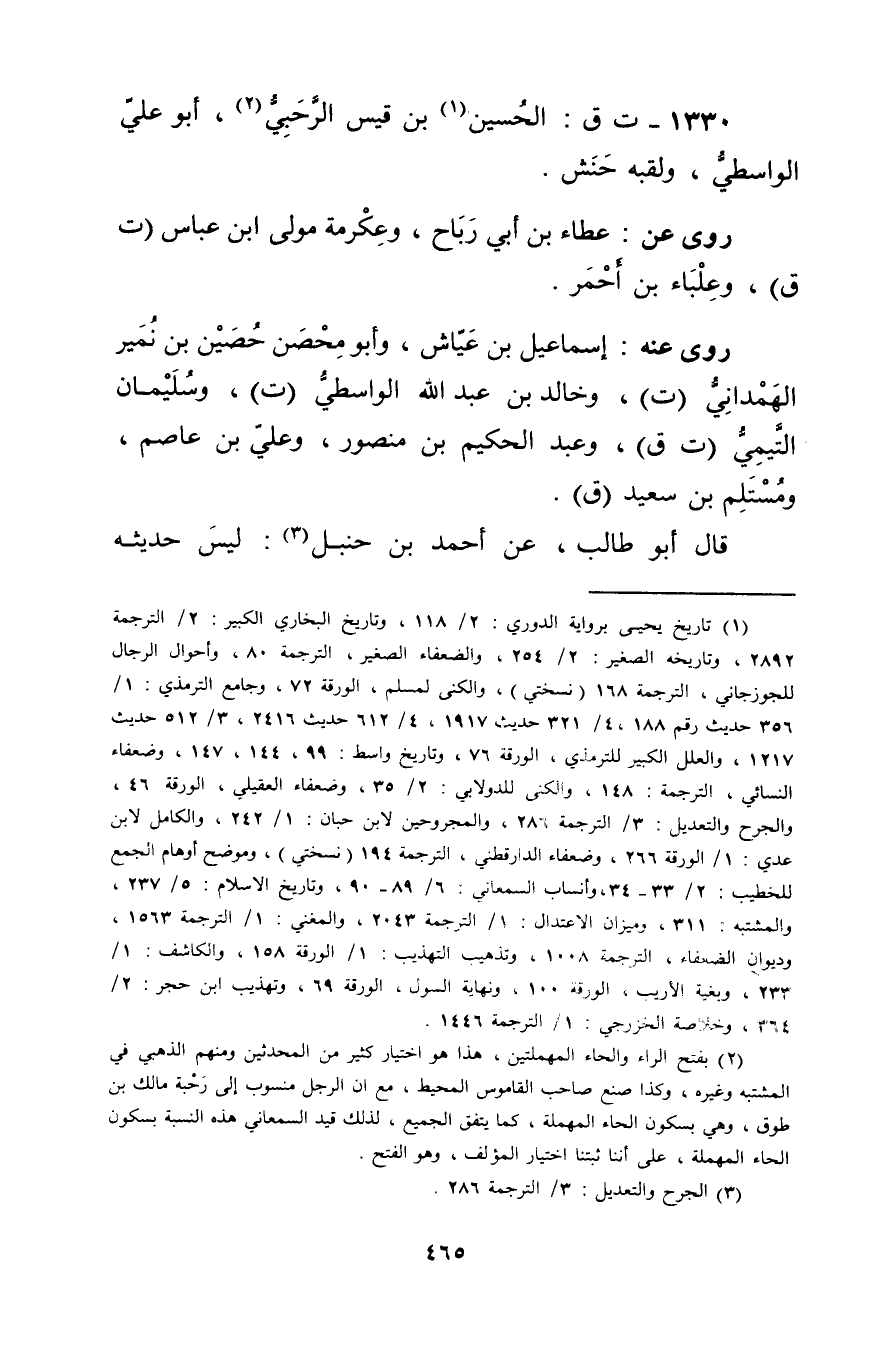 ١٣٣٠ ـ ت ق : الحُسين(١) بن قيس الرَّحَبِيُّ(٢) ، أبو عليّ
الواسطيُّ ، ولقبه حَنَش .
روى عن : عطاء بن أبي رَبَاح ، وعِكْرمة مولى ابن عباس (ت
ق) ، وعِلْبَاء بن أَحْمَر .
روى عنه : إسماعيل بن عَيّاش ، وأبو مِحْصَن حُصَيْن بن نُمَير
الهَمْدانِيُّ (ت) ، وخالد بن عبد الله الواسطيُّ (ت) ، وسُلَيْمـان
التَّيمِيُّ (ت ق) ، وعبد الحكيم بن منصور ، وعليّ بن عاصم ،
ومُسْتَلِم بن سعيد (ق) .
قال أبو طالب ، عن أحمد بن حنبـل(٣) : ليسَ حديثـه
(١) تاريخ يحيـى برواية الدوري : ٢/ ١١٨ ، وتاريخ البخاري الكبير : ٢/ الترجمة
٢٨٩٢ ، وتاريخه الصغير : ٢/ ٢٥٤ ، والضعفاء الصغير ، الترجمة ٨٠ ، وأحوال الرجال
للجوزجاني ، الترجمة ١٦٨ ( نسختي ) ، والكنى لمسلم ، الورقة ٧٢ ، وجامع الترمذي : ١/
٣٥٦ حديث رقم ١٨٨ ،٤/ ٣٢١ حديث ١٩١٧ ، ٤/ ٦١٢ حديث ٢٤١٦ ، ٣/ ٥١٢ حديث
١٢١٧ ، والعلل الكبير للترمذي ، الورقة ٧٦ ، وتاريخ واسط : ٩٩ ، ١٤٤ ، ١٤٧ ، وضعفاء
النسائي ، الترجمة : ١٤٨ ، والكنى للدولابي : ٢/ ٣٥ ، وضعفاء العقيلي ، الورقة ٤٦ ،
والجرح والتعديل : ٣/ الترجمة ٢٨٦ ، والمجروحين لابن حبان : ١/ ٢٤٢ ، والكامل لابن
عدي : ١/ الورقة ٢٦٦ ، وضعفاء الدارقطني ، الترجمة ١٩٤ ( نسختي ) ، وموضح أوهام الجمع
للخطيب : ٢/ ٣٣ ـ ٣٤،وأنساب السمعاني : ٦/ ٨٩ ـ ٩٠ ، وتاريخ الاسلام : ٥/ ٢٣٧ ،
والمشتبه : ٣١١ ، وميزان الاعتدال : ١/ الترجمة ٢٠٤٣ ، والمغني : ١/ الترجمة ١٥٦٣ ،
وديوان الضعفاء ، الترجمة ١٠٠٨ ، وتذهيب التهذيب : ١/ الورقة ١٥٨ ، والكاشف : ١/
٢٣٣ ، وبغية الأريب ، الورقة ١٠٠ ، ونهاية السول ، الورقة ٦٩ ، وتهذيب ابن حجر : ٢/
٣٦٤ ، وخلاصة الخزرجي : ١/ الترجمة ١٤٤٦ .
(٢) بفتح الراء والحاء المهملتين ، هذا هو اختيار كثير من المحدثين ومنهم الذهبي في
المشتبه وغيره ، وكذا صنع صاحب القاموس المحيط ، مع ان الرجل منسوب إلى رَحْبة مالك بن
طوق ، وهي بسكون الحاء المهملة ، كما يتفق الجميع ، لذلك قيد السمعاني هذه النسبة بسكون
الحاء المهملة ، على أننا ثبتنا اختيار المؤلف ، وهو الفتح .
(٣) الجرح والتعديل : ٣/ الترجمة ٢٨٦ .
٤٦٥